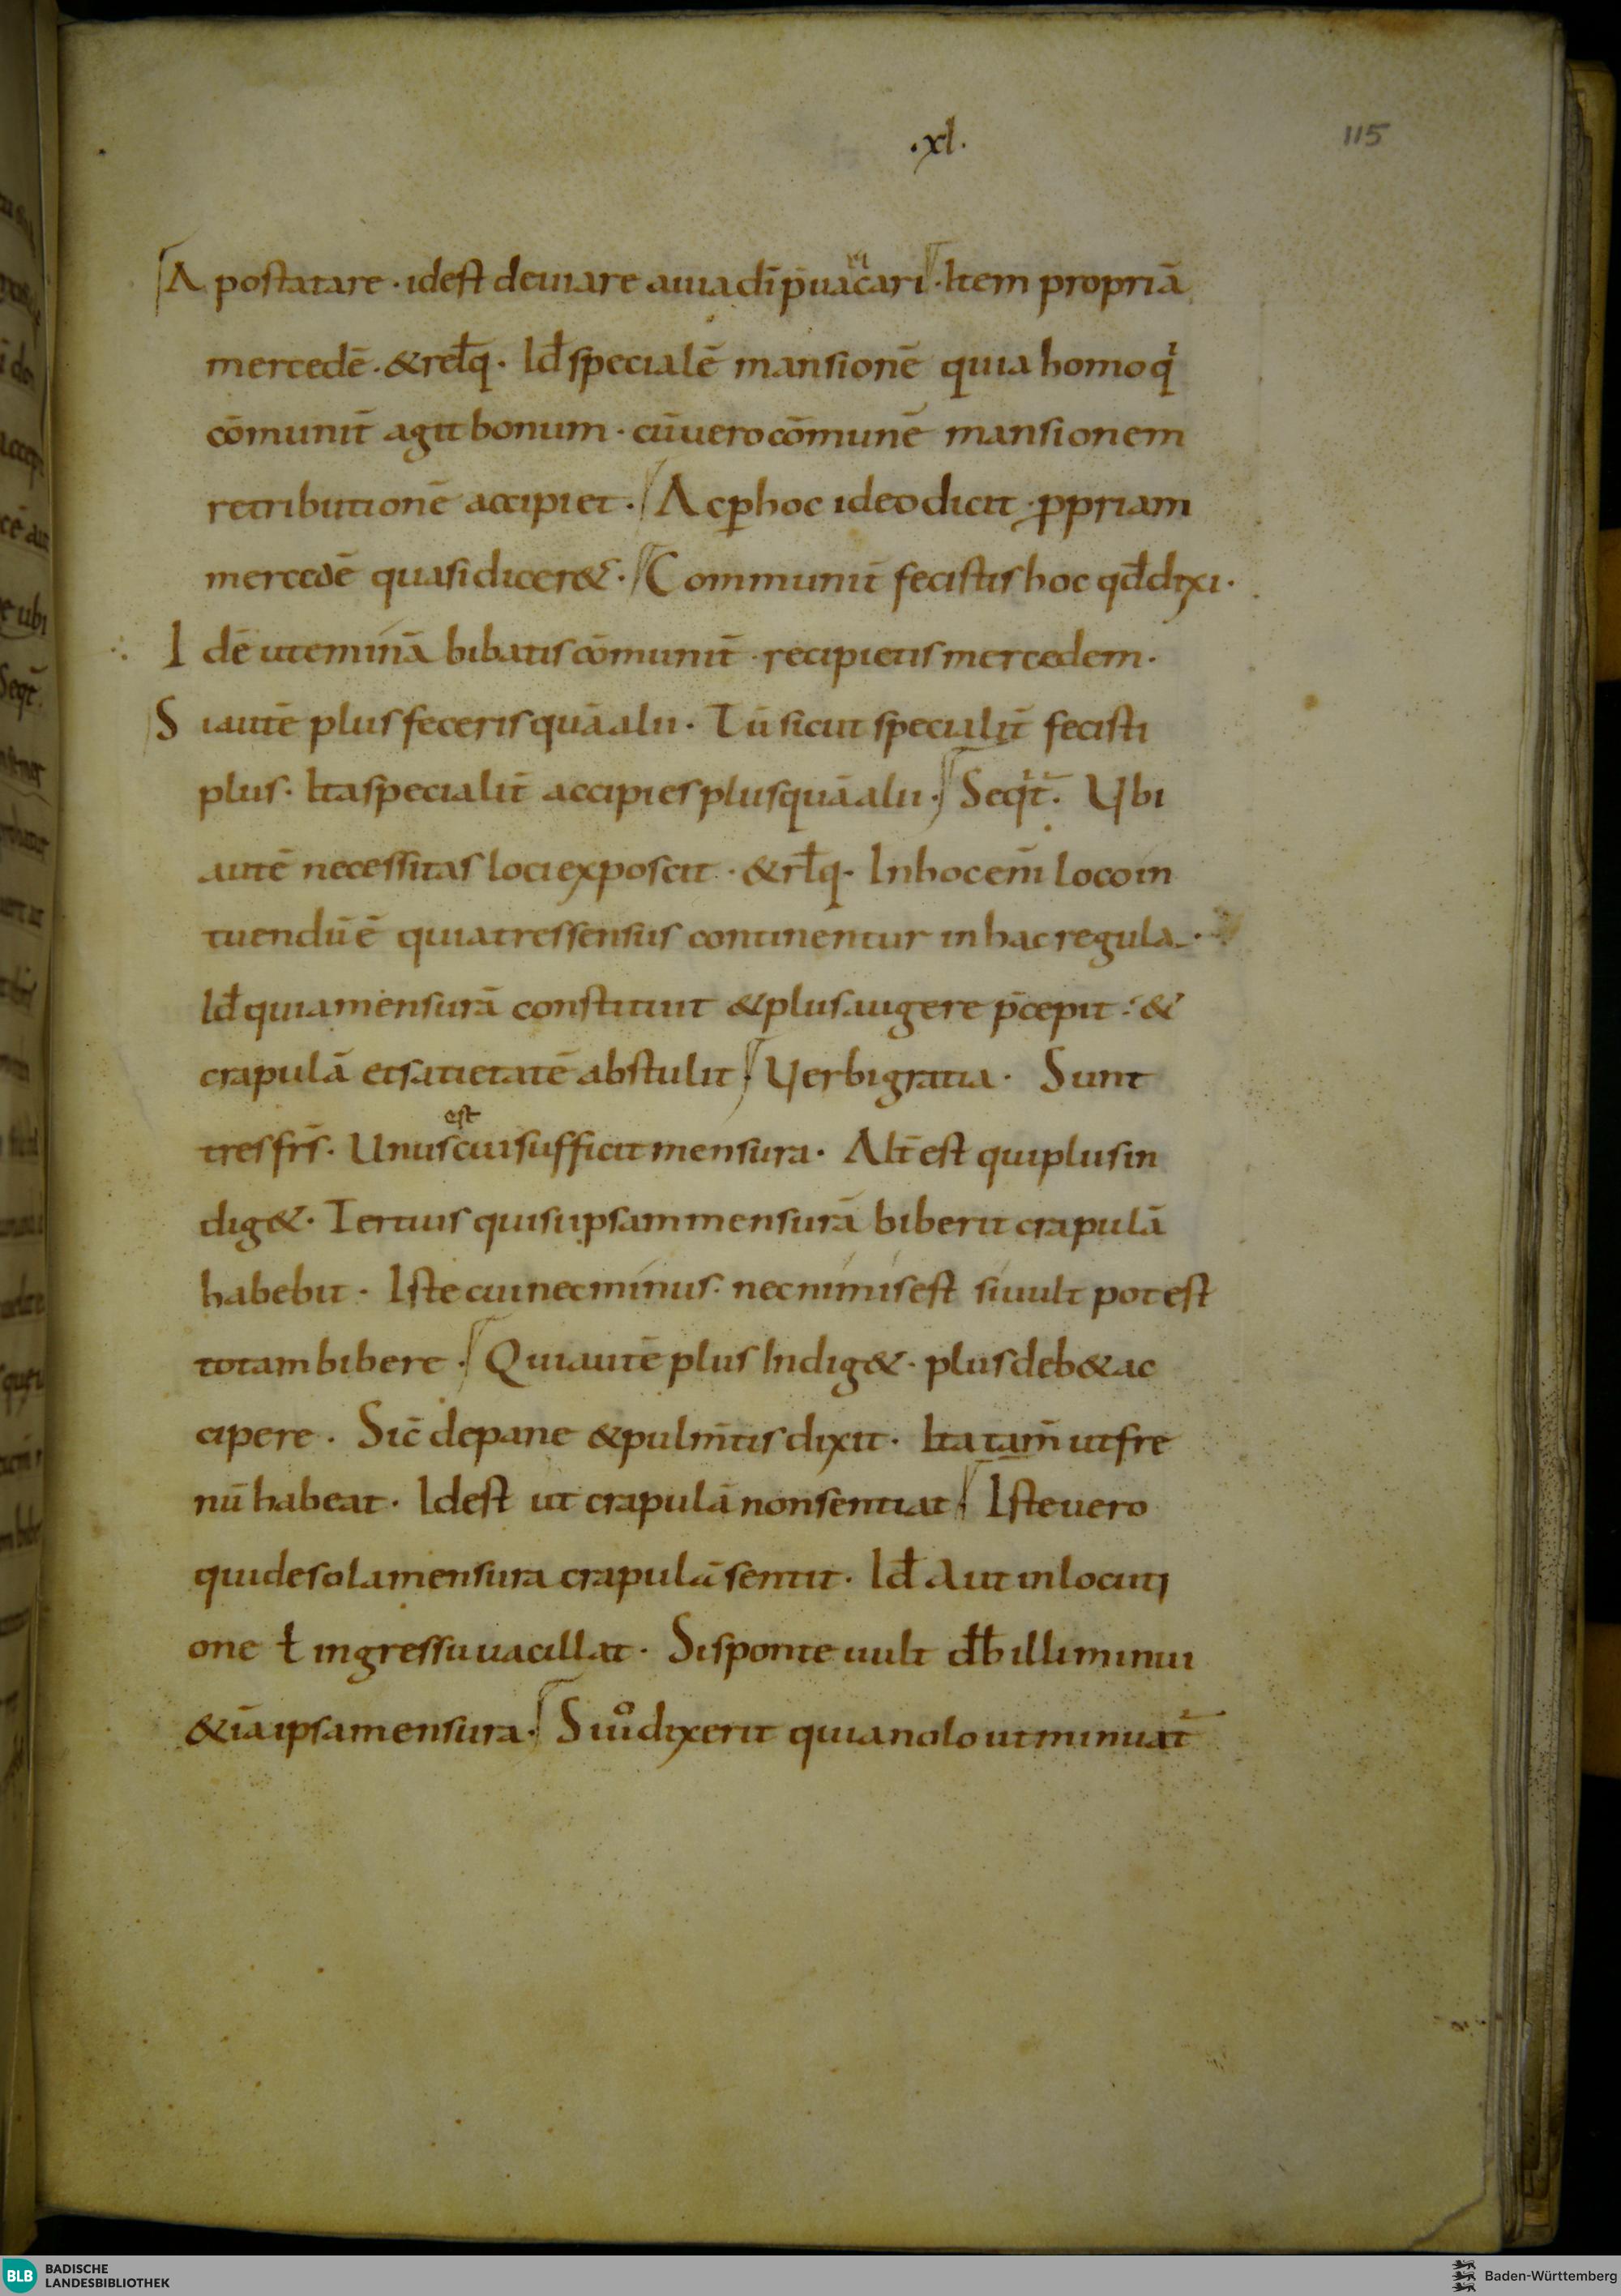 .xl.
115
Apostatare · idest deuiare auia dī p̄uacari · Item propriā
mercedē · & relq̄ · Id̄ specialē mansionē quia homo qi
cōmunit̄ agit bonum · cū uero cōmunē mansionem
retributionē accipiet · Ac ꝑ hoc ideo dicit · ꝓpriam
mercedē quasi dicer& · Communit̄ fecistis hoc qd̄ dixi ·
Idē ut eminā bibatis cōmunit̄ · recipietis mercedem ·
Si autē plus feceris quā alii · Tū sicut specialit̄ fecisti
plus · Ita specialit̄ accipies plus quā alii · Seqt̄ · Ubi
autē necessitas loci exposcit · & rlq̄ · In hoc eni̅ loco in
tuendū ē quia tres sensus continentur in hac regula ·
Id̄ quia mensurā constituit & plus augere p̄cepit · &
crapulā et satietatē abstulit · Uerbi gratia · Sunt
est
tres fr̄s · Unus cui sufficit mensura · Alt̄ est qui plus in
dig& · Tertius qui si ipsam mensurā biberit crapulā
habebit · Iste cui nec minus · nec nimis est si uult potest
totam bibere · Qui autē plus Indig& · plus deb& ac
cipere · Sic̄ de pane & pulm̄tis dixit · Ita tam̄ ut fre
nū habeat · Idest ut crapulā non sentiat · Iste uero
qui de sola mensura crapulā sentit · Id̄ Aut in locuti
one ł ingressu uacillat · Si sponte uult db̄ illi minui
&iā ipsa mensura · Si uo dixerit quia nolo ut minuat̄
BLB BADISCHE
LANDESBIBLIOTHEK
Baden-Württemberg